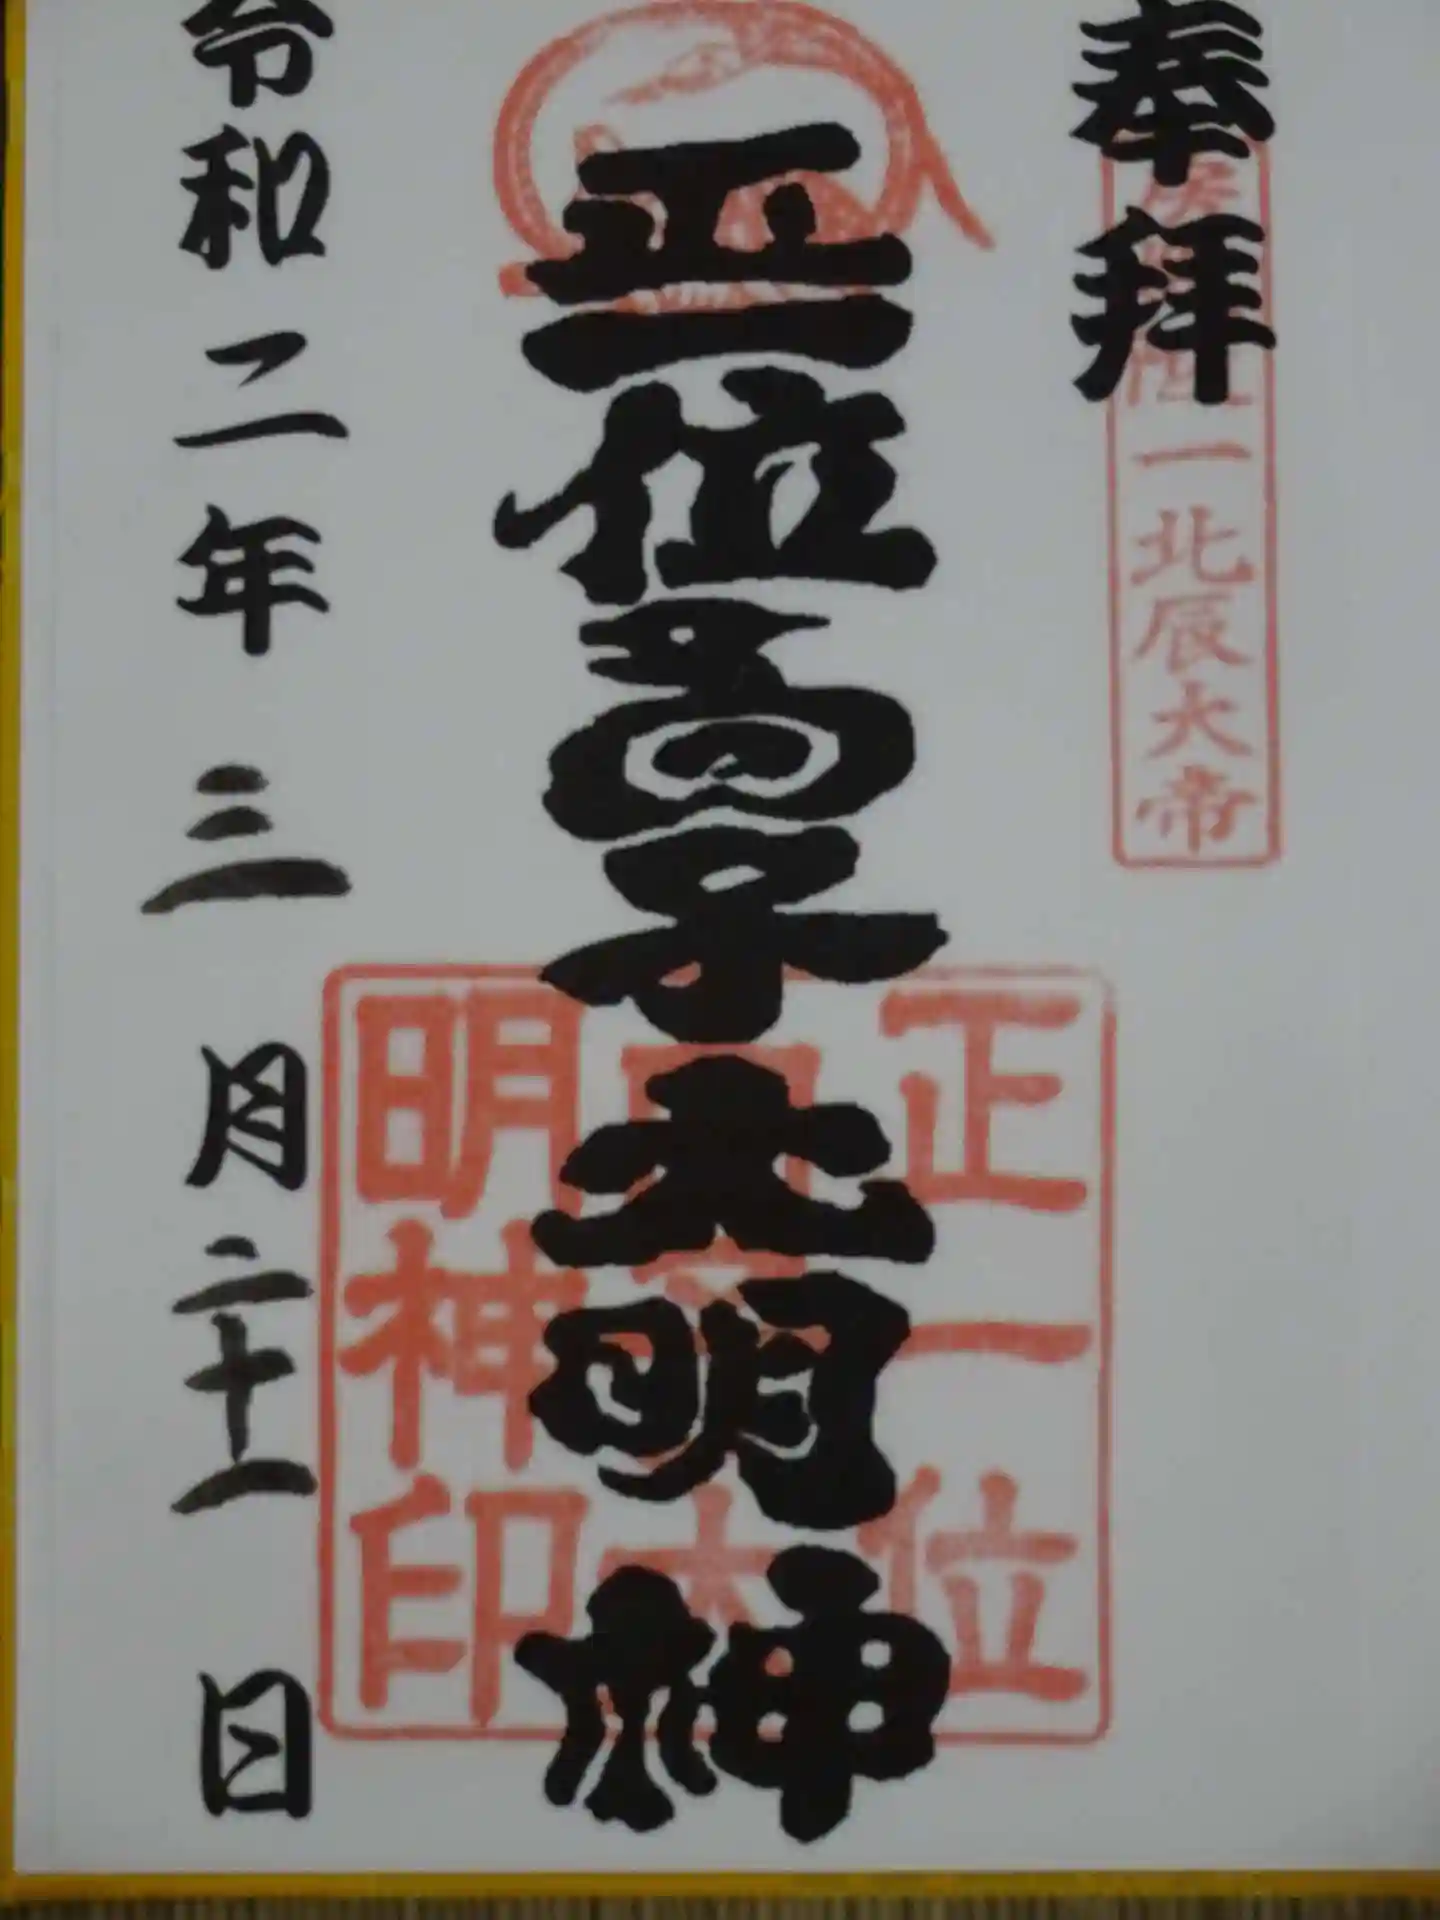 奉拝
一北辰大帝
正一位高子大明神
正一位
明神印
令和二年三月二十一日